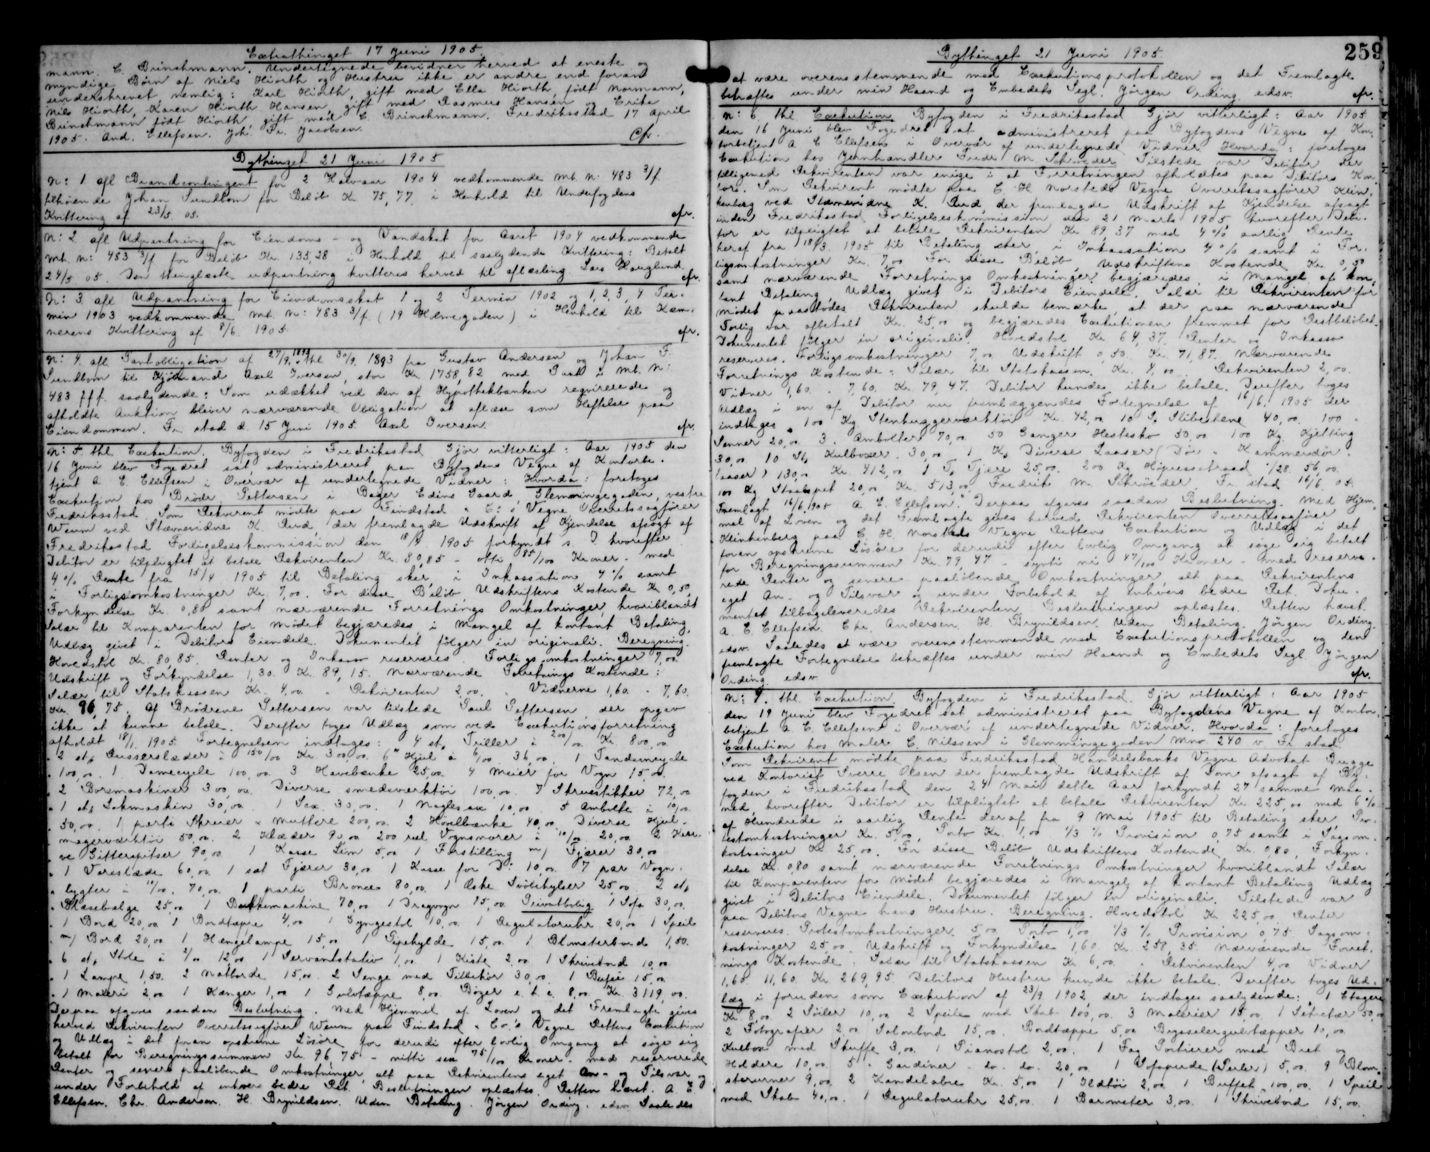 Extrathinget 17 Juni 1905.
mann. E. Brinchmann. Undertegnede bevidner herved at eneste og
myndige Børn af Niels Hiorth og Hustru ikke er andre end foran
underskrevet nemlig: Karl Hiorth, gift med Ella Hiorth, født Normann,
Nils Hiorth, Karen Hiorth Hansen, gift med Rasmus Hansen og Erika
Brinchmann født Hiorth, gift med E. Brinchmann. Fredriksstad 17 April
1905. And. Ellefsen. Joh. Fr. Jacobsen.
Bythinget 21 Juni 1905
N: 1 afl Brandcontingent for 2 Halvaar 1904 vedkommende mt. n: 483 3/f
tilhørende Johan Sundbom for Beløb Kr 75,77 i Henhold til Underfogdens
Kvittering af 23/5 05. efr.
N: 2 afl Udpantning for Eiendoms- og Vandskat for Aaret 1904 vedkommende
mt. n: 453 3/f for Beløb Kr. 135,28 i Henhold til saalydende Kvittering: Betalt
24/5 05. Den thinglæste udpantning kvitteres herved til aflæsning Lars Hauglund. efr.
N: 3 afl Udpantning for Eiendomsskat 1 og 2 Termin 1902 og 1, 2, 3, 4 Ter-
min 1903 vedkommende mt. n: 483 3/f (19 Kirkegaden) i Henhold til Kæm-
nerens Kvittering af 8/6. 1905. efr.
N: 4 afl Panteobligation af 27/9 1893 thl 30/9 1893 fra Gustav Andersen og Johan F.
Sundbom til Kjøbmand Axel Iversen, stor Kr 1758,82 med Pant i mt. n:
483 fff saalydende: Som udækket ved den af Hypothekbanken reqvirerede og
afholdte Auktion bliver nærværende Obligation at aflæse som Heftelse paa
Eiendommen. Fr. stad d 15 Juni 1905 Axel Iversen. efr.
N: 5 thl Exekution. Byfogden i Fredriksstad Gjør vitterligt: Aar 1905 den
16 Juni blev Fogedret sat administreret paa Byfogdens Vegne af Kontorbe-
tjent A E Ellefsen i Overvær af undertegnede Vidner: Hvorda: foretoges
Exekution hos Brødr. Pettersen i Bager Edins Gaard, Glemmingegaden, vestre
Fredriksstad. Som Rekvirent mødte paa Fundstad & Co.'s Vegne Overretssagfører
Waum ved Stamevidne K. Rud der fremlagde Udskrift af Kjendelse afsagt af
Fredrikstad Forligelseskommission den 18/4 1905 forkyndt s. D hvorefter
Debitor er tilpligtet at betale Rekvirenten Kr 80,85 - otti 85/100 Kroner - med
4 % Rente fra 15/4 1905 til Betaling sker, i Inkassation 4 % samt
i Forligsomkostninger Kr. 7,00. For disse Beløb, Udskriftens Kostende Kr 0,50,
Forkyndelse Kr. 0,80 samt nærværende Forretnings Omkostninger hvoriblandt
Salær til Komparenten for mødet begjæredes i Mangel af kontant Betaling,
Udlæg givet i Debitors Eiendele. Dokumentet følger in originali. Beregning.
Hovedstol Kr. 80,85. Renter og Inkasso reserveres. Forligsomkostninger 7,00
Udskrift og Forkyndelse 1,30. Kr 89,15. Nærværende Forretnings Kostende:
Salær til Statskassen Kr. 4,00. - Rekvirenten 2,00. Vidnerne 1,60. - 7,60.
Kr. 96,75. Af Brødrene Pettersen var tilstede Paul Pettersen der opgav
ikke at kunne betale. Derefter toges Udlæg som ved Exekutionsforretning
afholdt 18/1 1905 Fortegnelsen indtages: 4 st. Triller à 200/00 Kr. 800,00
" 2 st. Gusserslæder à 150/00 Kr 300,00 6 Hjul à 6/00 36,00. 1 Tandemcycle
" 100,00. 1 Damecycle 100,00 3 Havebænke 25,00 4 Meier for Vogn 15,00
" 2 Boremaskiner 300,00 Diverse smedeværktøi 100,00. 7 Skruestikker 72,00
" 1 st. Lokmaskin 30,00. 1 Sax. 30,00. 1 Naglesax 10,00 5 Ambolte à 10/00.
" 50,00. 1 parti Skruer & Muttere 200,00. 2 Høvlbænke 40,00. Diverse Hjul-
magerværktøi 50,00. 2 Slæder 90,00 200 rul Vognsnorer à 10/00 20,00 2 Karr-
" ve Gitterspitser 90,00. 1 Kasse Lim 5,00 1 Forstilling m/ Fjærer 30,00
" 1 Vareslæde 60,00. 1 sæt Fjærer 30,00 1 Kasse for D: 10,00. 7 par Vogn-
" lygter à 10/00. 70,00. 1 parti Bronce 80,00. 1 Eske Sølvhylser 25,00. 2 st.
" Blæsebelge 25,00 1 Bukkemaskine 70,00 1 Dregvogn 15,00 Privatbolig 1 Sofa 30,00.
" 1 Bord 20,00 1 Bordtæppe 4,00 1 Gyngestol 10,00. 1 Regulatoruhr 20,00 1 Speil
" m/ Bord 20,00 1 Hængelampe 15,00 1 Gipshylde 15,00. 1 Blomsterbord 1,50.
" 6 st. Stole à 2/00 12,00 1 Servantstativ 1,00. 1 Kiste 2,00. 1 Skrivebord 10,00
" 1 Lampe 1,50. 2 Natborde 15,00. 2 Senge med Tilbehør 30,00. 1 Buffet 15,00
" 1 Maleri 2,00 1 Hænger 1,00 1 Gulvtæppe 8,00. Bøger e. t. c. 8,00. Kr. 3119,00.
Derpaa afgaves saadan Beslutning. Med Hjemmel af Loven og det Fremlagte gives
herved Rekvirenten Overretssagfører Waum paa Fundstad & Co.'s Vegne Rettens Exekution
og Udlæg i det foran opskrevne Løsøre, for derudi efter lovlig Omgang at søge sig
betalt for Beregningssummen Kr. 96 75 - nitti sex 75/100 Kroner - med reserverede
Renter og senere paaløbende Omkostninger, alt paa Rekvirentens eget An- og Tilsvar og
under Forbehold af enhver bedre Ret. Beslutningen oplæstes. Retten hævet. A. E.
Ellefsen. Chr. Andersen. H. Brynildsen. Uden Betaling. Jørgen Ording. edsv. Saaledes
Bythinget 21 Juni 1905
259
at være overensstemmende med Exekutionsprotokollen og det Fremlagte
bekræftes under min Haand og Embedets Segl. Jørgen Ording edsv. efr.
N: 6 thl Exekution Byfogden i Fredriksstad Gjør vitterligt: Aar 1905
den 16 Juni blev Fogedret sat, administreret paa Byfogdens Vegne af Kon-
torbetjent A E Ellefsen i Overvær af undertegnede Vidner Hvorda: foretoges
Exekution hos Jernhandler Fredr. M Schrøder. Tilstede var Debitor der
tilligemed Rekvirenten var enige i at Forretningen afholdtes paa Debitors Kon-
tor. Som Rekvirent mødte paa C. H Norsteds Vegne Overretssagfører Klin-
kenberg ved Stamevidne K. Rud der fremlagde Udskrift af Kjendelse afsagt
inden Fredriksstad Forligelseskommission den 21 Marts 1905 hvorefter Debi-
tor er tilpligtet at betale Rekvirenten Kr 89,37 med 4 % aarlig Rente
heraf fra 18/3 1905 til Betaling sker i Inkassation 4 % samt i For-
ligsomkostninger Kr. 7,00 For disse Beløb Udskriftens Kostende Kr. 0,50
samt nærværende Forretnings Omkostninger begjæredes i Mangel af kon-
tant Betaling Udlæg givet i Debitors Eiendele. Salær til Rekvirenten for
mødet paastodes. Rekvirenten skulde bemærke at der paa nærværende
Forlig var afbetalt Kr. 25,00 og begjæredes Exekutionen fremmet for Restbeløbet.
Dokumentet følger in originali. Hovedstol Kr 64,37. Renter og Inkasso
reserveres. Forligsomkostninger 7,00 Udskrift 0,50. Kr. 71,87. Nærværende
Forretnings Kostende: Salær til Statskassen Kr. 4,00. Rekvirenten 2,00.
Vidner 1,60. 7,60. Kr. 79,47. Debitor kunde ikke betale. Derefter toges
Udlæg i en af Debitor nu fremlæggendes Fortegnelse af 16/6 1905 der
indtages 100 Kg Stenhuggerværktøi Kr 42,00 10 S. Slibestene 40,00 100
Senner 20,00. 3 Ambolter 70,00 50 Ganger Hestesko 50,00 100 Kg. Kjetting
30,00 10 St. Kulboxer. 30,00. Kg. Diverse Laaser (Dør & Kammerdør-
laaser) 130,00 Kr. 412,00. 1 Tø Tjære 25,00 200 Kg Hÿpresstraad 7/28. 56,00.
100 Kg Staalspet 20,00 Kr. 513,00. Fredrik M Schrøder. Fr stad 16/6 05
Fremlagt 16/6 1905 A. E. Ellefsen. Derpaa afgaves saadan Beslutning. Med Hjem-
mel af Loven og det Fremlagte gives herved Rekvirenten Overretssagfører
Klinkenberg paa C. H Norsteds Vegne Rettens Exekution og Udlæg i det
foran opskrevne Løsøre for derudi efter lovlig Omgang at søge sig betalt
for Beregningssummen Kr. 79,47 - sytti ni 47/100 Kroner - med reserve-
rede Renter og senere paaløbende Omkostninger, alt paa Rekvirentens
eget An- og Tilsvar og under Forbehold af enhver bedre Ret. Doku-
mentet tilbageleveredes Rekvirenten. Beslutningen oplæstes. Retten hævet.
A. E. Ellefsen. Chr. Andersen. H. Brynildsen. Uden Betaling. Jørgen Ording.
edsv. Saaledes at være overensstemmende med Exekutionsprotokollen og den
fremlagte Fortegnelse bekræftes under min Haand og Embedets Segl Jørgen
Ording edsv. efr.
N: 7. thl. Exekution. Byfogden i Fredriksstad. Gjør vitterligt: Aar 1905
den 19 Juni blev Fogedret sat administreret paa Byfogdens Vegne af Kontor-
betjent A E Ellefsen i Overvær af undertegnede Vidner. Hvorda: foretoges
Exekution hos Maler E. Nilssen i Glemmingegaden Mno 240 v Fr stad
Som Rekvirent mødte paa Fredriksstad Handelsbanks Vegne Advokat Bugge
ved Kontorist Sverre Olsen der fremlagde Udskrift af Dom afsagt af By-
fogden i Fredriksstad den 24 Mai dette Aar forkyndt 27 samme Maa-
ned, hvorefter Debitor er tilpligtet at betale Rekvirenten Kr. 225,00 med 6 %
af Hundrede i aarlig Rente deraf fra 9 Mai 1905 til Betaling sker Pro-
testomkostninger Kr. 5,00, Porto Kr. 1,00 1/3 % Provision 0,75 samt i Sagsom-
kostninger Kr 25,00. For disse Beløb Udskriftens Kostende Kr. 0,80, Forkyn-
delse Kr. 0,80 samt nærværende Forretnings Omkostninger hvoriblandt Salær
til Komparenten for Mødet begjæredes i Mangel af kontant Betaling Udlæg
givet i Debitors Eiendele. Dokumentet følger in originali. Tilstede var
paa Debitors Vegne hans Hustru. Beregning. Hovedstol Kr 225,00. Renter
reserveres. Protestomkostninger 5,00 Porto 1,00 1/3 % Provision 0,75 Sagsom-
kostninger 25,00. Udskrift og Forkyndelse 1,60. Kr. 258,35. Nærværende Forret-
nings Kostende: Salær til Statskassen Kr 6,00. - Rekvirenten 4,00 Vidner
1,60. 11,60. Kr 269,95 Debitors Hustru kunde ikke betale. Derefter toges Ud-
læg i foruden som Exekution af 23/9 1902, der indtages saalydende: 1 Etagere
Kr 8,00. 2 Søiler 10,00. 2 Speile med Skab 100,00. 3 Malerier 15,00. 1 Sekretær 50,00
2 Fotografier 2,00 Salonbord 15,00. Bordtæppe 5,00 Brysselergulvtæpper 10,00
Kulbox med Skuffe 3,00. 1 Pianostol 2,00. 1 Fag Portierer med Bret og
Holdere 10,00. 5 - Gardiner - do. do. 20,00 1 Sofapude (Perler) 5,00. 9 Blom-
sterurner 9,00. 2 Kandelabre Kr. 5,00 1 Ildtøi 2,00. 1 Buffet 100,00. 1 Speil
med Skab 40,00. 1 Regulatoruhr 25,00. 1 Barometer 3,00. 1 Skrivebord 15,00.